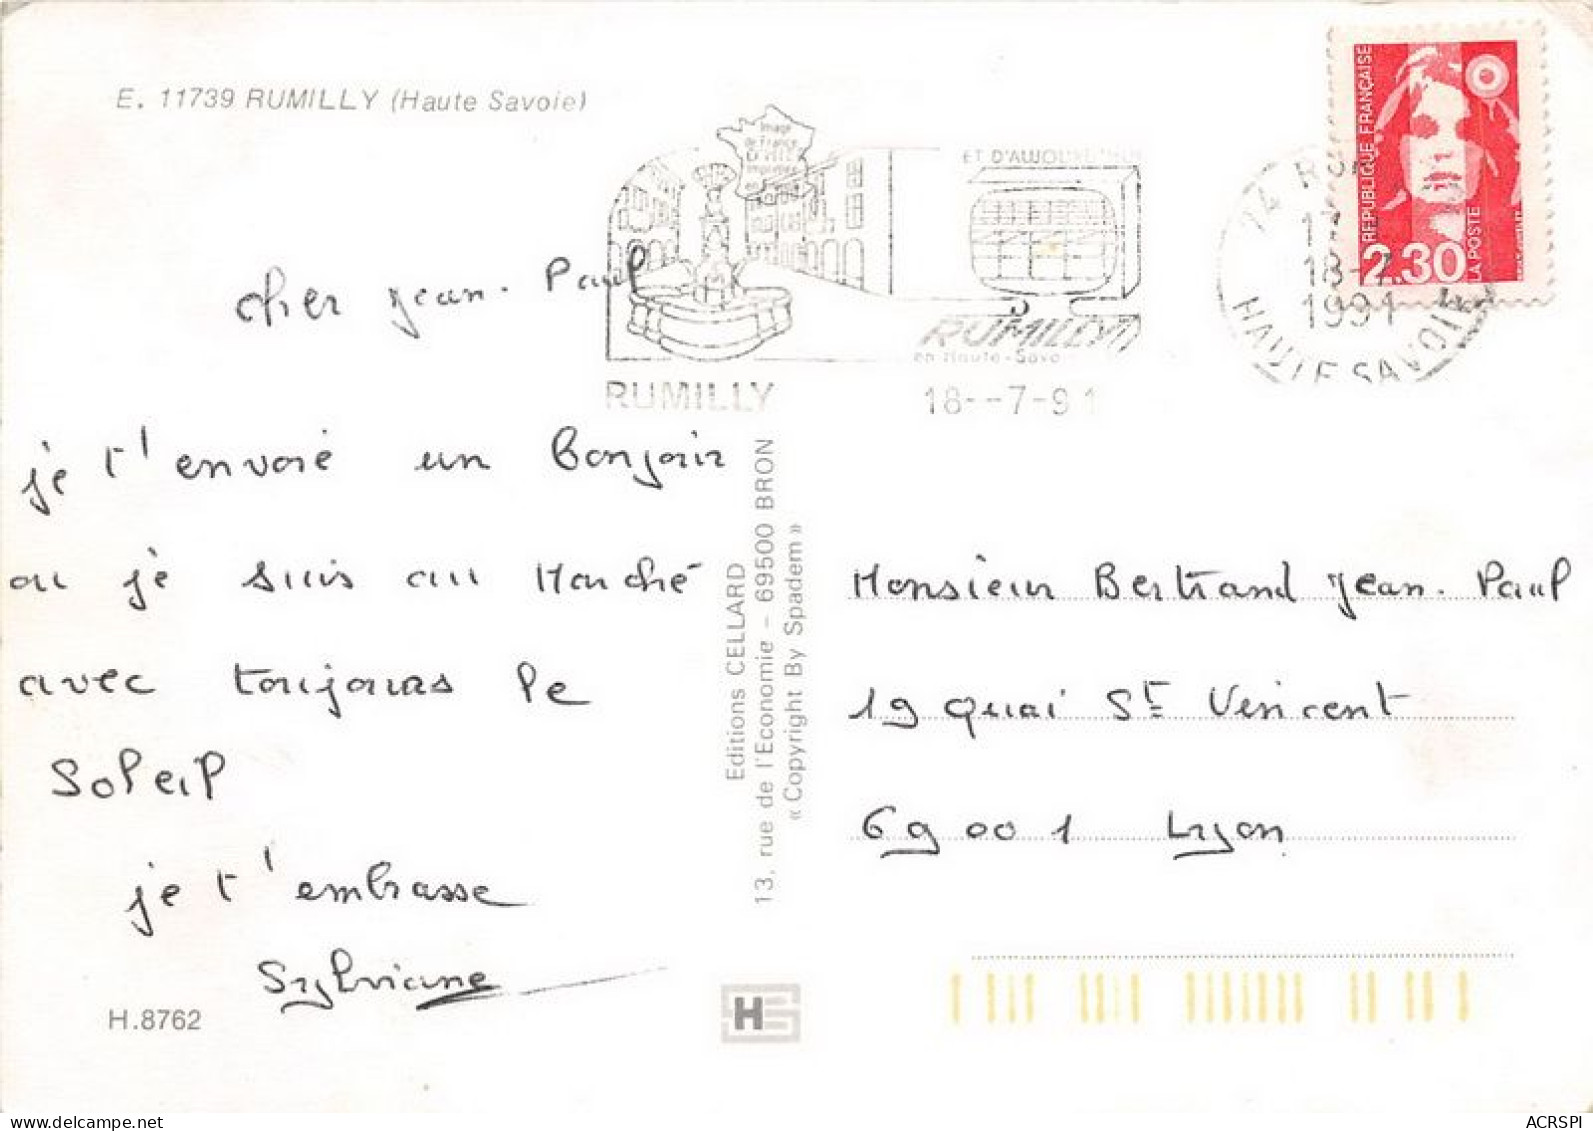 E. 11739 RUMILLY (Haute Savoie)
Image
de France
La Ville
Imprimée
en
ET D'AUJOURD'HUI
RUMILLY
en Haute-Savoie
RUMILLY
18--7-91
74 RUM
17
18-7
1991
HAUTE SAVOIE
REPUBLIQUE FRANÇAISE
2,30
LA POSTE
cher Jean-Paul
je t'envoie un Bonjour
ou je suis au Marché
avec toujours le
Soleil
je t'embrasse
Sylviane
H.8762
Editions CELLARD
13, rue de l'Economie - 69500 BRON
« Copyright By Spadem »
H
Monsieur Bertrand Jean-Paul
19 Quai St Vincent
69001 Lyon
www.delcampe.net
ACRSPI